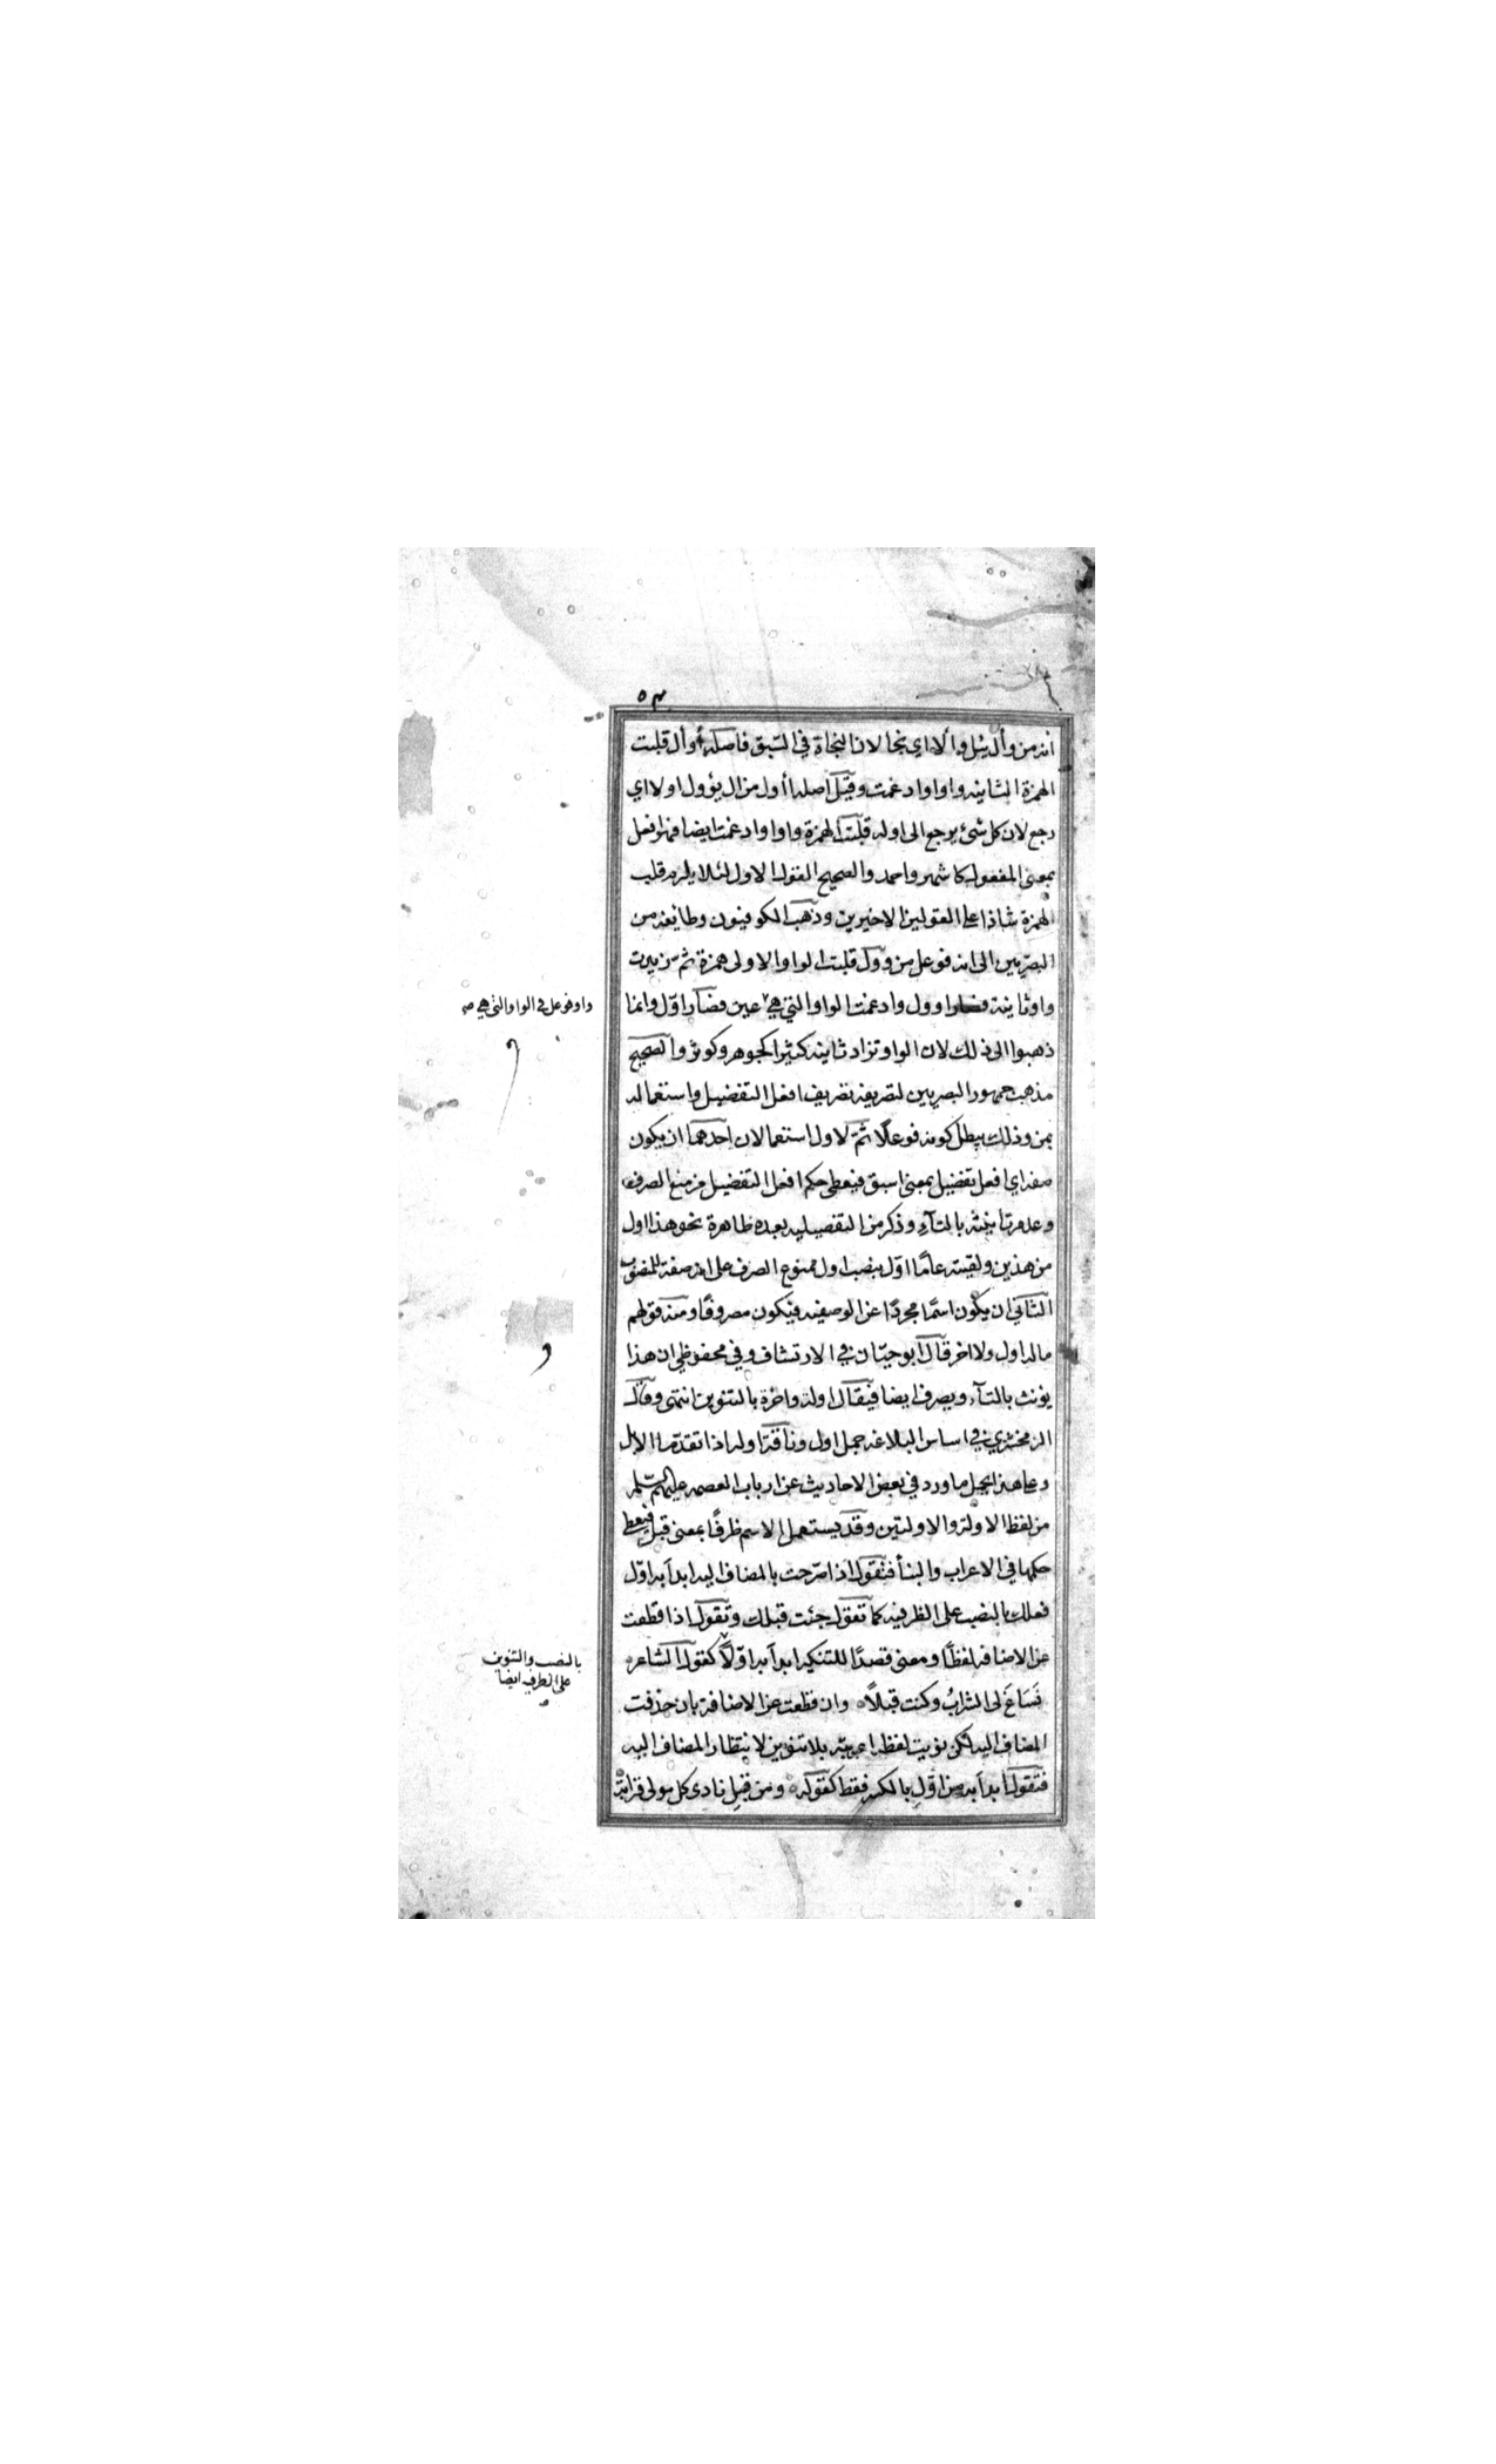 ٥٣
انه من وأل يئل وألا اي نجا لان النجاة في السبق فاصله أوأل قلبت
الهمزة الثانيه واوا وادغمت وقيل اصله أأول من ال يؤول اولا اي
رجع لان كل شئ يرجع الى اوله قلبت الهمزة واوا وادغمت ايضا فهو افعل
بمعنى المفعول كاشهر واحمد والصحيح القول الاول لئلا يلزم قلب
الهمزة شاذا على القولين الاخيرين وذهب الكوفيون وطايفه من
البصريين الى انه فوعل من وول قلبت الواو الاولى همزة ثم زيدت
واو ثانية فصار اوول وادغمت الواو التي هي عين فصار اوّل وانما
واو فوعل في الواو التي هي صح
ذهبوا الى ذلك لان الواو تزاد ثانيه كثيرا كجوهر وكوثر والصحيح
مذهب جمهور البصريين لتصريفه تصريف افعل التفضيل واستعماله
بمن وذلك يبطل كونه فوعلًا ثمّ لاول استعمالان احدهما ان يكون
صفه اي افعل تفضيل بمعنى اسبق فيعطى حكم افعل التفضيل من منع الصرف
وعدم تانيثه بالتآء وذكر من التفضيليه بعده ظاهرة نحو هذا اول
من هذين ولقيته عامًا اوّل بنصب اول ممنوع الصرف على انه صفة للمنصوب
الثاني ان يكون اسمًا مجردًا عن الوصفيه فيكون مصروفًا ومنه قولهم
ماله اول ولا اخر قال ابو حيّان في الارتشاف وفي محفوظي ان هذا
يؤنث بالتآء ويصرف ايضا فيقال اولة واخرة بالتنوين انتهى وقال
الزمخشري في اساس البلاغه جمل اول وناقة اوله اذا تقدّما الابل
وعلى هذا يحمل ما ورد في بعض الاحاديث عن ارباب العصمه عليهم السّلم
من لفظ الاولة والاولتين وقد يستعمل الاسم ظرفًا بمعنى قبل فيعطى
حكمها في الاعراب والبنأ فتقول اذا صرّحت بالمضاف اليه ابدأ به اوّل
فعلك بالنصب على الظرفيه كما تقول جئت قبلك وتقول اذا قطعت
عن الاضافه لفظًا ومعنى قصدًا للتنكير ابدأ به اوّلًا كقول الشاعر
بالنصب والتنوين
على الظرفيه ايضا
فَسَاغَ لى الشرابُ وكنت قبلًا وان قطعت عن الاضافة بان حذفت
المضاف اليه لكن نويت لفظه اعربته بلا تنوين لانتظار المضاف اليه
فتقول ابدأ به من اوّلِ بالكسر فقط كقوله ومن قبلِ نادى كل مولى قرابة